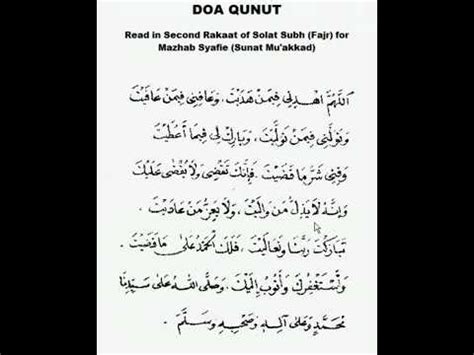 DOA QUNUT
Read in Second Rakaat of Solat Subh (Fajr) for
Mazhab Syafie (Sunat Mu'akkad)
اَللّٰهُمَّ اهْدِنِي فِيمَنْ هَدَيْتَ، وَعَافِنِي فِيمَنْ عَافَيْتَ
وَتَوَلَّنِي فِيمَنْ تَوَلَّيْتَ، وَبَارِكْ لِي فِيمَا أَعْطَيْتَ
وَقِنِي شَرَّ مَا قَضَيْتَ. فَإِنَّكَ تَقْضِي وَلَا يُقْضَى عَلَيْكَ
وَإِنَّهُ لَا يَذِلُّ مَنْ وَالَيْتَ، وَلَا يَعِزُّ مَنْ عَادَيْتَ.
تَبَارَكْتَ رَبَّنَا وَتَعَالَيْتَ، فَلَكَ الْحَمْدُ عَلَى مَا قَضَيْتَ.
وَأَسْتَغْفِرُكَ وَأَتُوبُ إِلَيْكَ، وَصَلَّى اللهُ عَلَى سَيِّدِنَا
مُحَمَّدٍ وَعَلَى آلِهِ وَصَحْبِهِ وَسَلَّمَ.